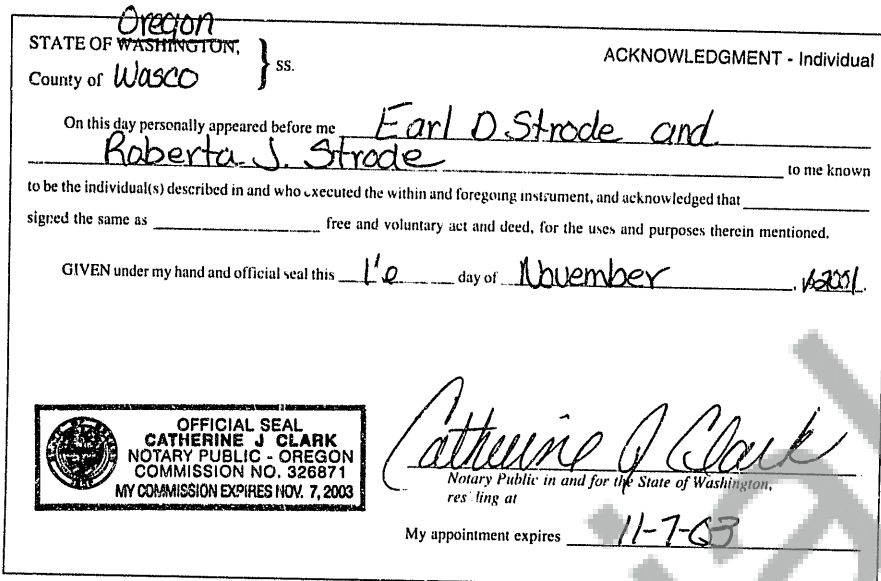 Oregon
STATE OF WASHINGTON,
County of Wasco } ss.
ACKNOWLEDGMENT - Individual
On this day personally appeared before me Earl D. Strode and
Roberta J. Strode to me known
to be the individual(s) described in and who executed the within and foregoing instrument, and acknowledged that
signed the same as free and voluntary act and deed, for the uses and purposes therein mentioned.
GIVEN under my hand and official seal this day of November, 2001.
OFFICIAL SEAL
CATHERINE J CLARK
NOTARY PUBLIC - OREGON
COMMISSION NO. 326871
MY COMMISSION EXPIRES NOV. 7, 2003
Catherine J Clark
Notary Public in and for the State of Washington,
residing at
My appointment expires 11-7-03